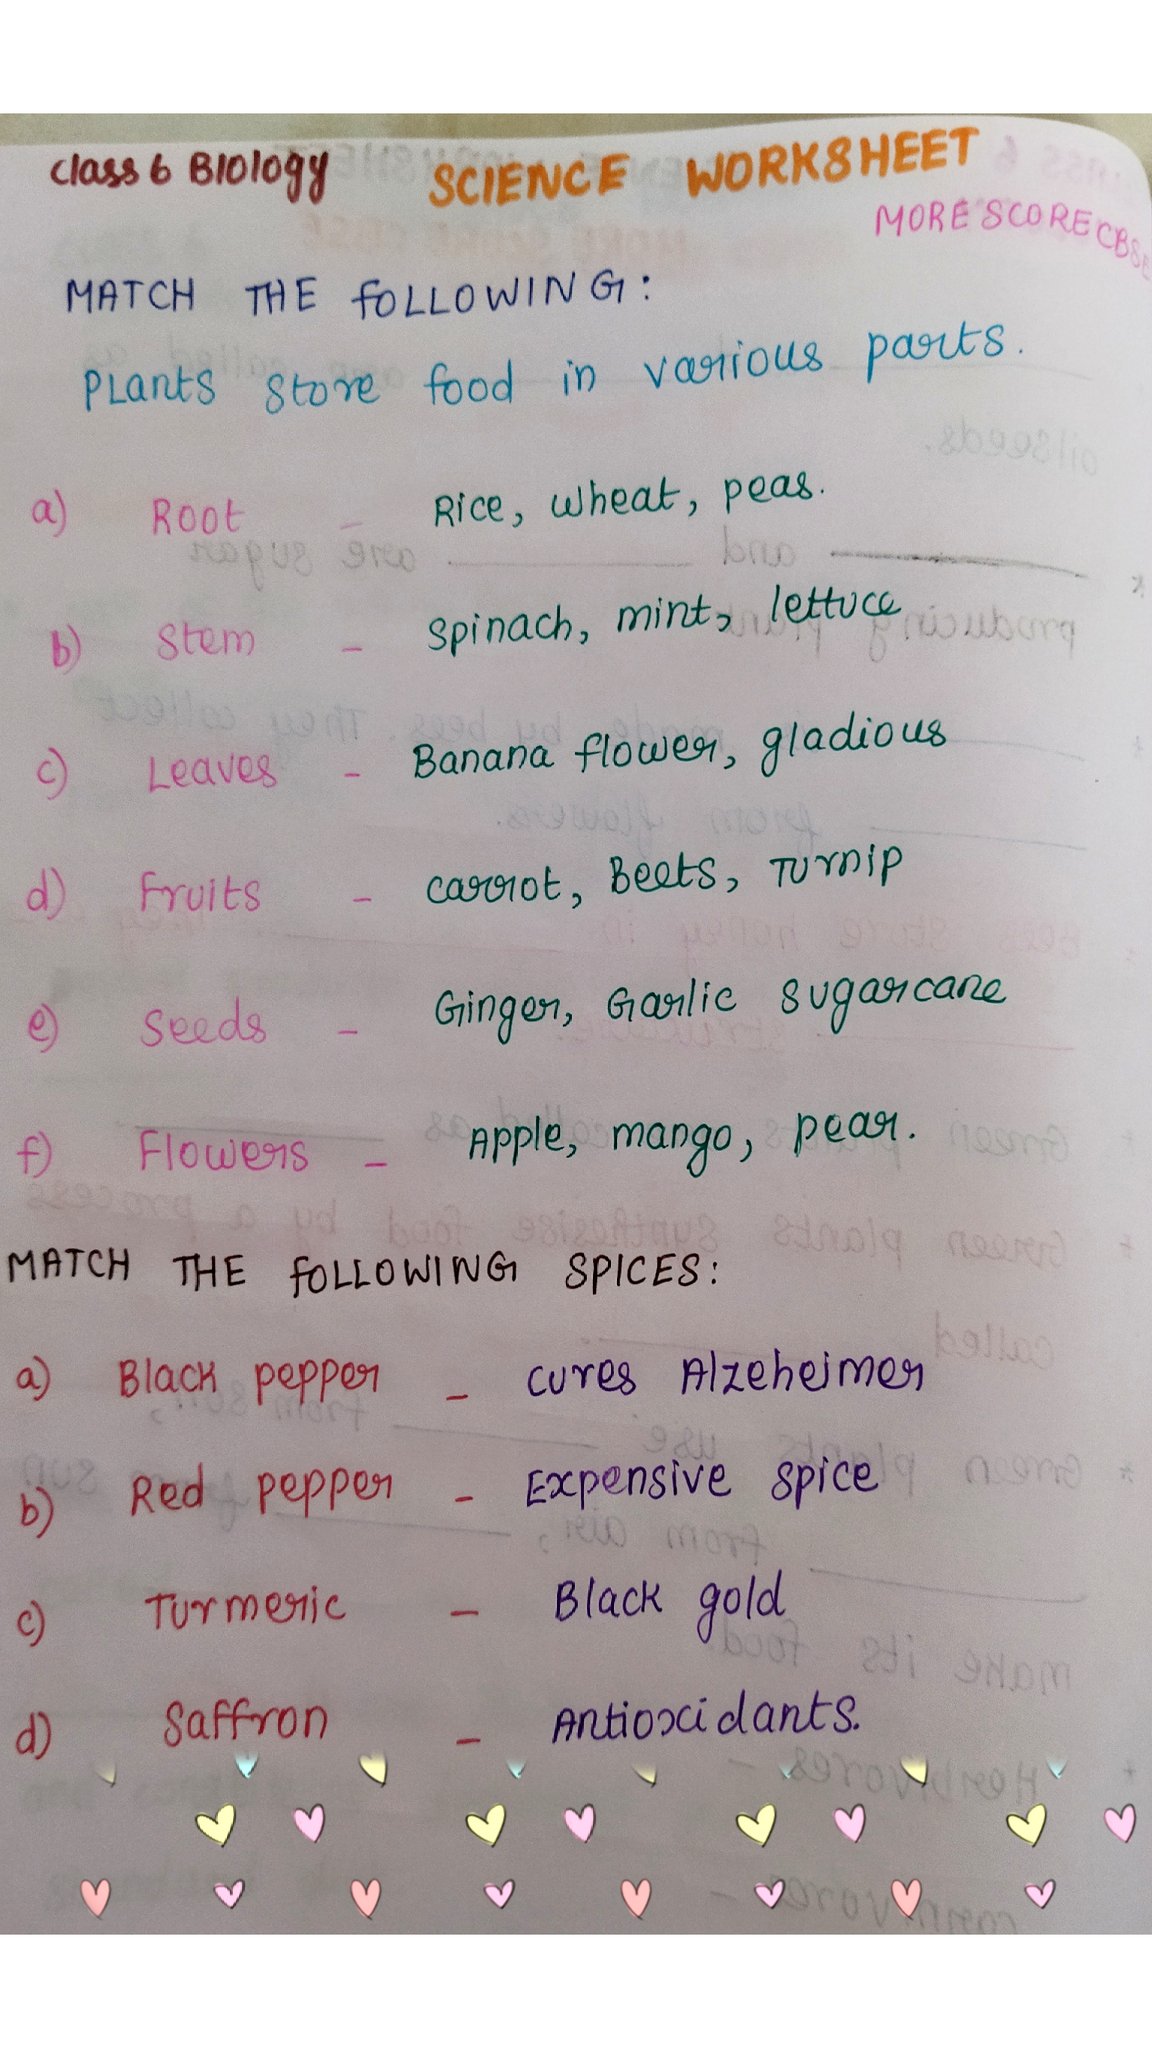 Class 6 Biology SCIENCE WORKSHEET
MORE SCORE CBSE
MATCH THE FOLLOWING:
Plants store food in various parts.
a) Root - Rice, wheat, peas.
b) Stem - Spinach, mint, lettuce
c) Leaves - Banana flower, gladious
d) Fruits - carrot, Beets, Turnip
e) Seeds - Ginger, Garlic sugarcane
f) Flowers - Apple, mango, pear.
MATCH THE FOLLOWING SPICES:
a) Black pepper - cures Alzeheimer
b) Red pepper - Expensive spice
c) Turmeric - Black gold
d) Saffron - Antioxidants.